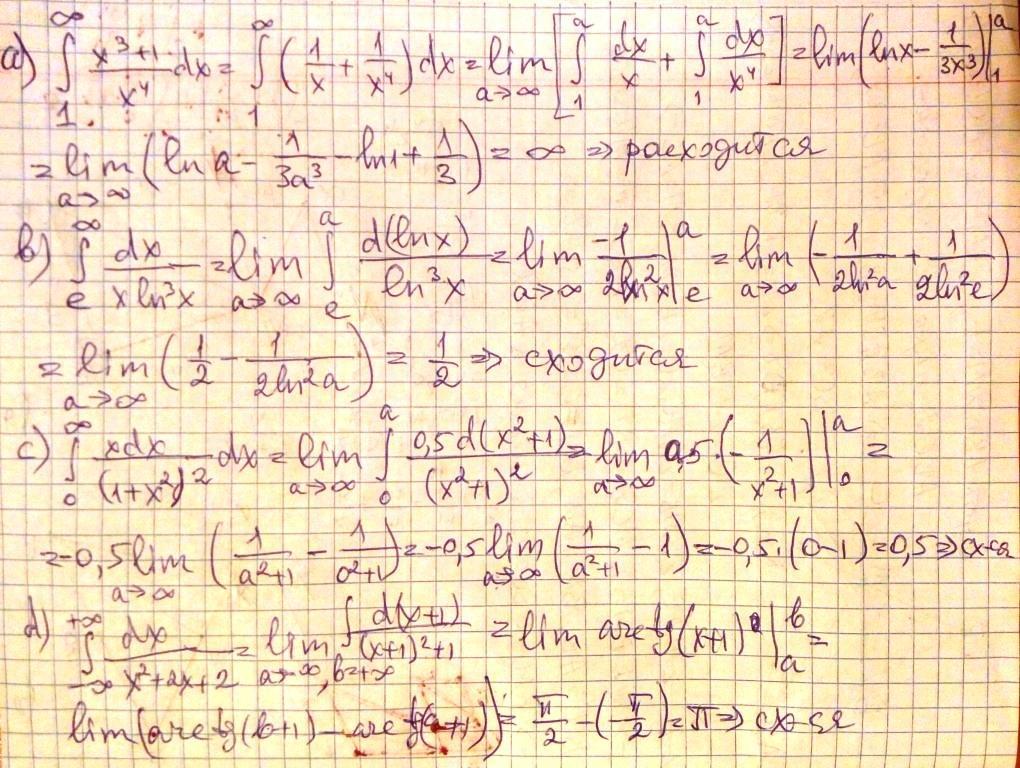 a) ∫₁^∞ (x³+1)/x⁴ dx = ∫₁^∞ (1/x + 1/x⁴) dx = lim_{a→∞} [∫₁^a dx/x + ∫₁^a dx/x⁴] = lim (ln x − 1/(3x³)) |₁^a
= lim_{a→∞} (ln a − 1/(3a³) − ln 1 + 1/3) = ∞ ⇒ расходится
b) ∫_e^∞ dx/(x ln³x) = lim_{a→∞} ∫_e^a d(ln x)/(ln³x) = lim_{a→∞} −1/(2ln²x) |_e^a = lim_{a→∞} (−1/(2ln²a) + 1/(2ln²e))
= lim_{a→∞} (1/2 − 1/(2ln²a)) = 1/2 ⇒ сходится
c) ∫₀^∞ xdx/(1+x²)² dx = lim_{a→∞} ∫₀^a 0,5d(x²+1)/(x²+1)² = lim_{a→∞} 0,5·(−1/(x²+1)) |₀^a =
= −0,5 lim_{a→∞} (1/(a²+1) − 1/(0²+1)) = −0,5 lim_{a→∞} (1/(a²+1) − 1) = −0,5·(0−1) = 0,5 ⇒ сх-ся
d) ∫_{−∞}^{+∞} dx/(x²+2x+2) = lim_{a→−∞, b→+∞} ∫ d(x+1)/((x+1)²+1) = lim arctg(x+1) |_a^b =
lim (arctg(b+1) − arctg(a+1)) = π/2 − (−π/2) = π ⇒ сх-ся